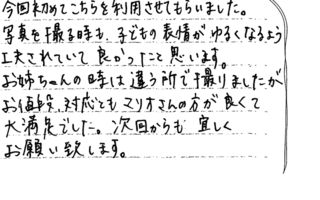 今回初めてこちらを利用させてもらいました。
写真を撮る時も、子どもの表情がゆるくなるよう
工夫されていて良かったこと思います。
お姉ちゃんの時は違う所で撮りましたが
お値段、対応ともマリオさんの方が良くて
大満足でした。次回からも宜しく
お願い致します。